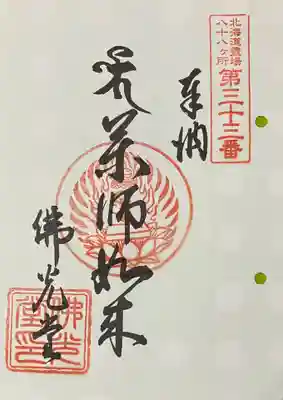 北海道霊場
八十八ヶ所
第三十三番
奉納
薬師如来
佛光堂